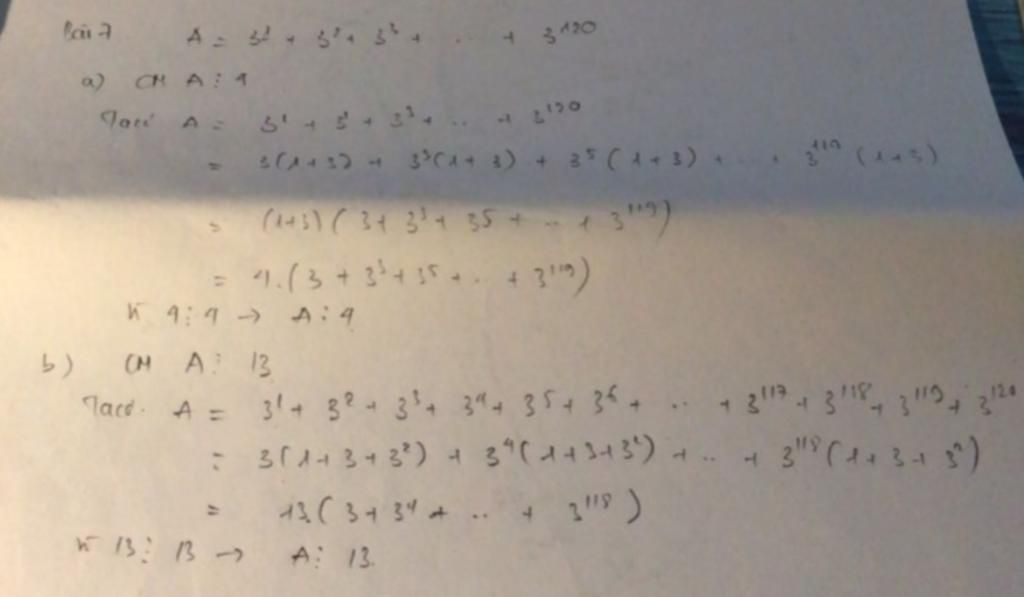 Bài 7 A = 3¹ + 3² + 3³ + ... + 3¹²⁰
a) CM A ⋮ 4
Ta có A = 3¹ + 3² + 3³ + .. + 3¹²⁰
= 3(1+3) + 3³(1+3) + 3⁵(1+3) + ... + 3¹¹⁹(1+3)
= (1+3)(3 + 3³ + 35 + .. + 3¹¹⁹)
= 4.(3 + 3³ + 3⁵ + .. + 3¹¹⁹)
Vì 4 ⋮ 4 → A ⋮ 4
b) CM A ⋮ 13
Ta có. A = 3¹ + 3² + 3³ + 3⁴ + 3⁵ + 3⁶ + .. + 3¹¹⁷ + 3¹¹⁸ + 3¹¹⁹ + 3¹²⁰
= 3(1+3+3²) + 3⁴(1+3+3²) + .. + 3¹¹⁸(1+3+3²)
= 13(3 + 3⁴ + .. + 3¹¹⁸)
Vì 13 ⋮ 13 → A ⋮ 13.